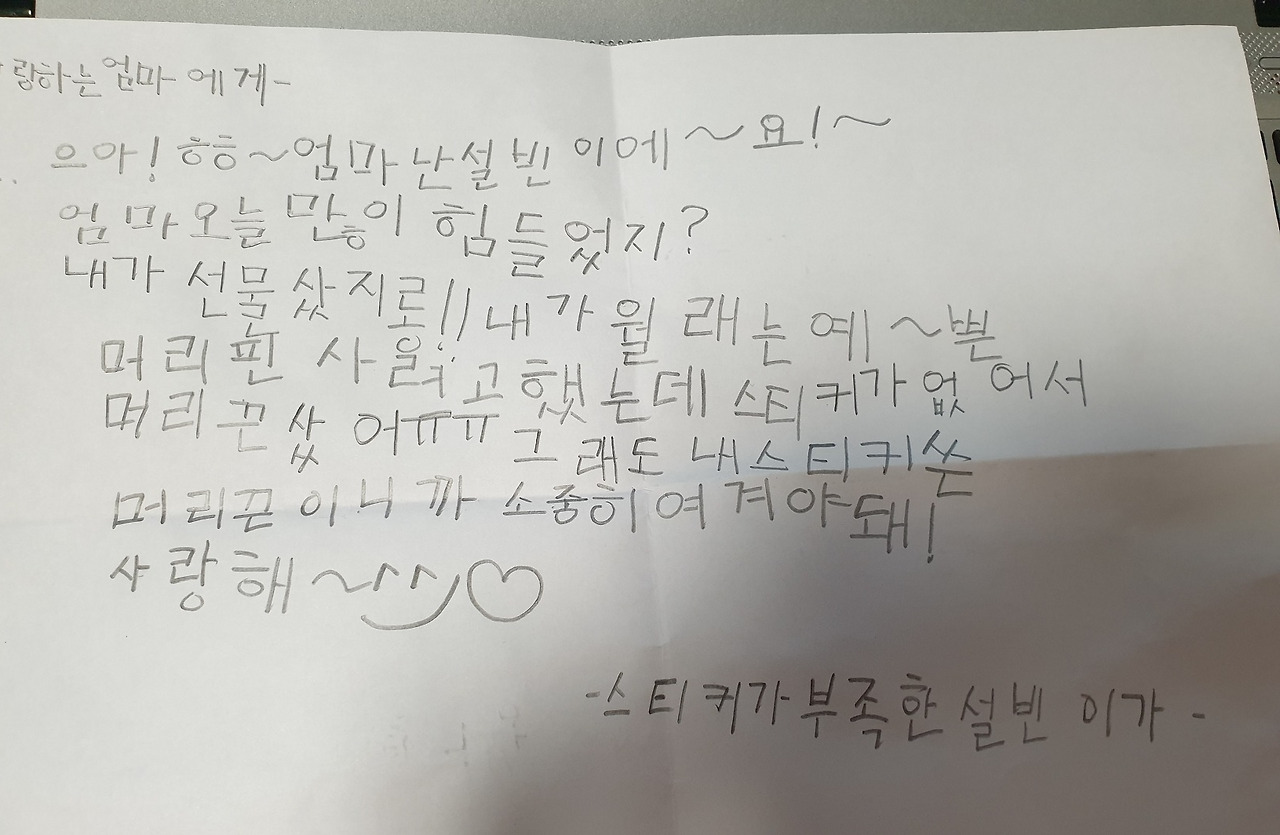 랑하는엄마에게-
으아! ㅎㅎ~엄마난설빈이에~요!~
엄마오늘 많이 힘들었지?
내가 선물샀지롱!! 내가 월래는 예~쁜
머리핀 사려고했는데 스티커가없어서
머리끈샀어ㅠㅠ 그래도 내스티커쓴
머리끈이니까 소중히여계야돼!
사랑해~^^♡
-스티커가부족한설빈이가-